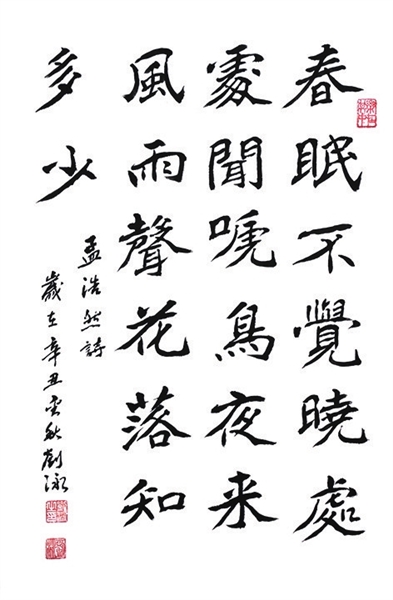 春眠不覺曉處
處聞嗁鳥夜来
風雨聲花落知
多少
孟浩然詩
歲在辛丑秋劉